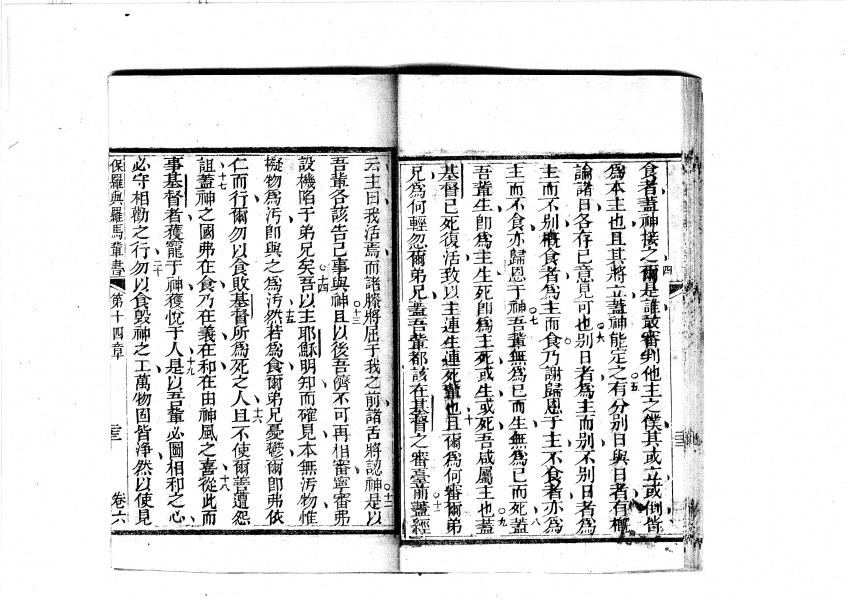 食者蓋神接之爾是誰敢審判他主之僕其或立或倒皆
四
為本主也且其將立蓋神能定之有分別日與日者有槪
五
論諸日各存己意見可也別日者為主而別不別日者為
六
主而不別槪食者為主而食乃謝歸恩于主不食者亦為
主而不食亦歸恩于神吾輩無為己而生無為己而死蓋
七
八
吾輩生即為主生死即為主死或生或死吾咸屬主也蓋
九
基督已死復活致以主連生連死輩也且爾為何審爾弟
十
兄為何輕忽爾弟兄蓋吾輩都該在基督之審臺前蓋經
十一
云主曰我活焉而諸膝將屈于我之前諸舌將認神是以
十二
吾輩各該告己事與神且以後吾儕不可再相審寧審弗
十三
設機陷于弟兄矣吾以主耶穌明知而確見本無汚物惟
十四
擬物為汚即與之為汚然若為食爾弟兄憂鬱爾即弗依
十五
仁而行爾勿以食敗基督所為死之人且不使爾善遭怨
十六
詛蓋神之國弗在食乃在義在和在由神風之喜從此而
十七
十八
事基督者獲寵于神獲悅于人是以吾輩必圖相和之心
十九
必守相勸之行勿以食毀神之工萬物固皆淨然以使見
二十
保羅與羅馬輩書 第十四章 卷六